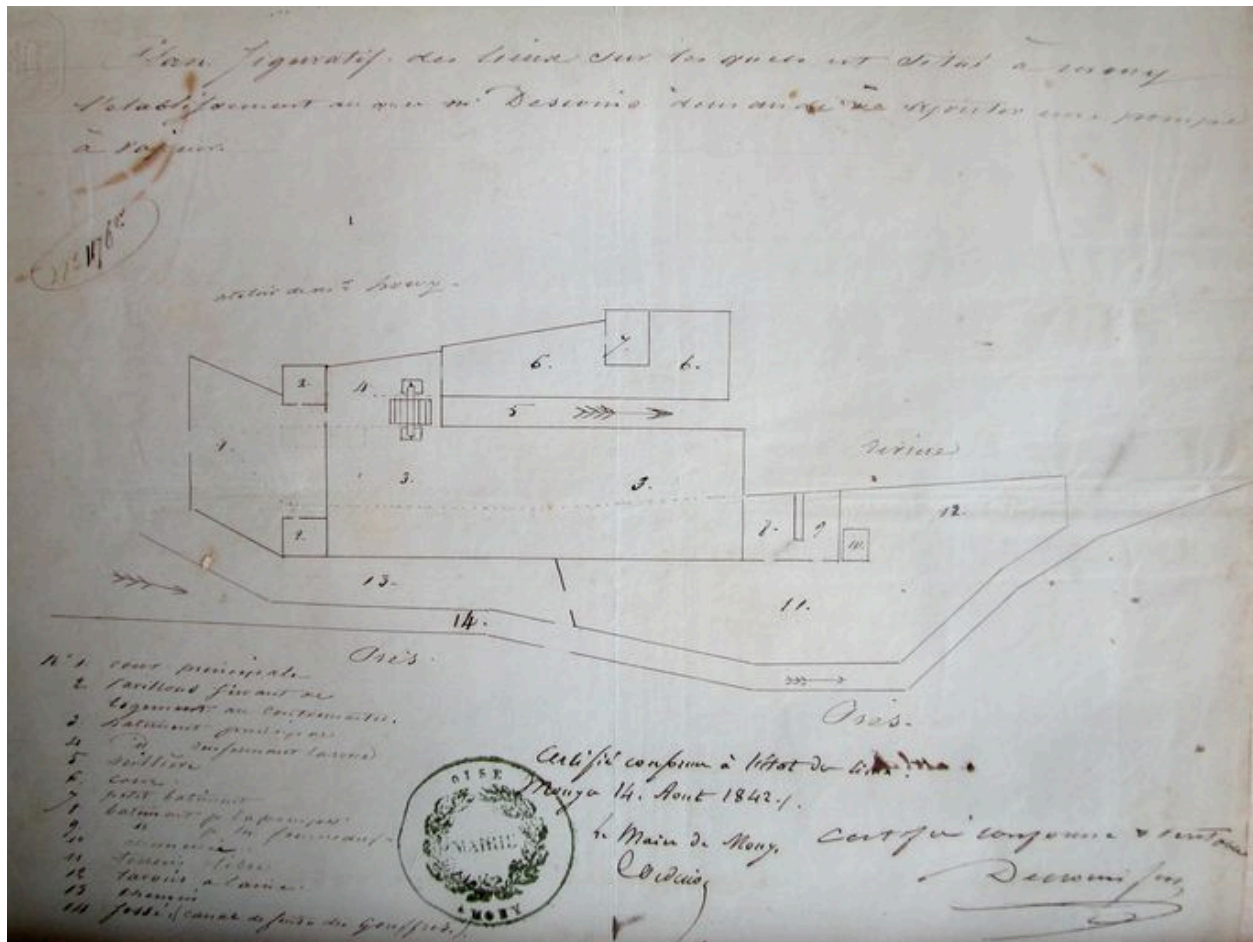 Plan figuratif des lieux sur lesquels est situé à Mouy
l'établissement au quel Mr demande à ajouter une pompe
à vapeur.
atelier de Mr
1
2.
4
6.
7
6.
5
1
3.
3.
Terrine
8.
9
10.
12.
2.
13.
11.
14.
Prés.
Prés.
No 1 cour principale
2 Pavillons servant de
logement au contremaître.
3 batiment principal
4 do renfermant la roue
5
6 cour
7 petit batiment
8 batiment pr la pompe
9 " pr les fourneaux
10 cheminée
11 terrain libre
12 à laine
13 chemin
14 fossé (canal de fuite du Gouffre.)
OISE
MAIRIE
A MOUY
Certifié conforme à l'état des lieux.
Mouy a 14. Aout 1842./.
Le Maire de Mouy.
Certifié conforme &